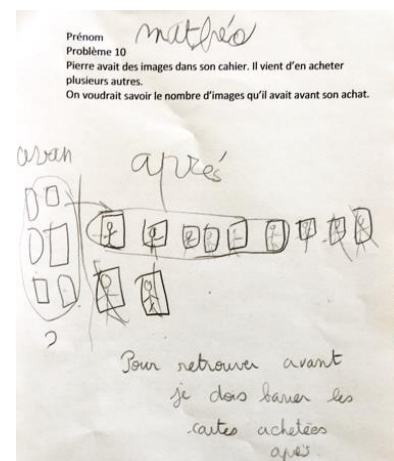 Prénom mathéo
Problème 10
Pierre avait des images dans son cahier. Il vient d'en acheter
plusieurs autres.
On voudrait savoir le nombre d'images qu'il avait avant son achat.
avan après
?
Pour retrouver avant
je dois barrer les
cartes achetées
après.